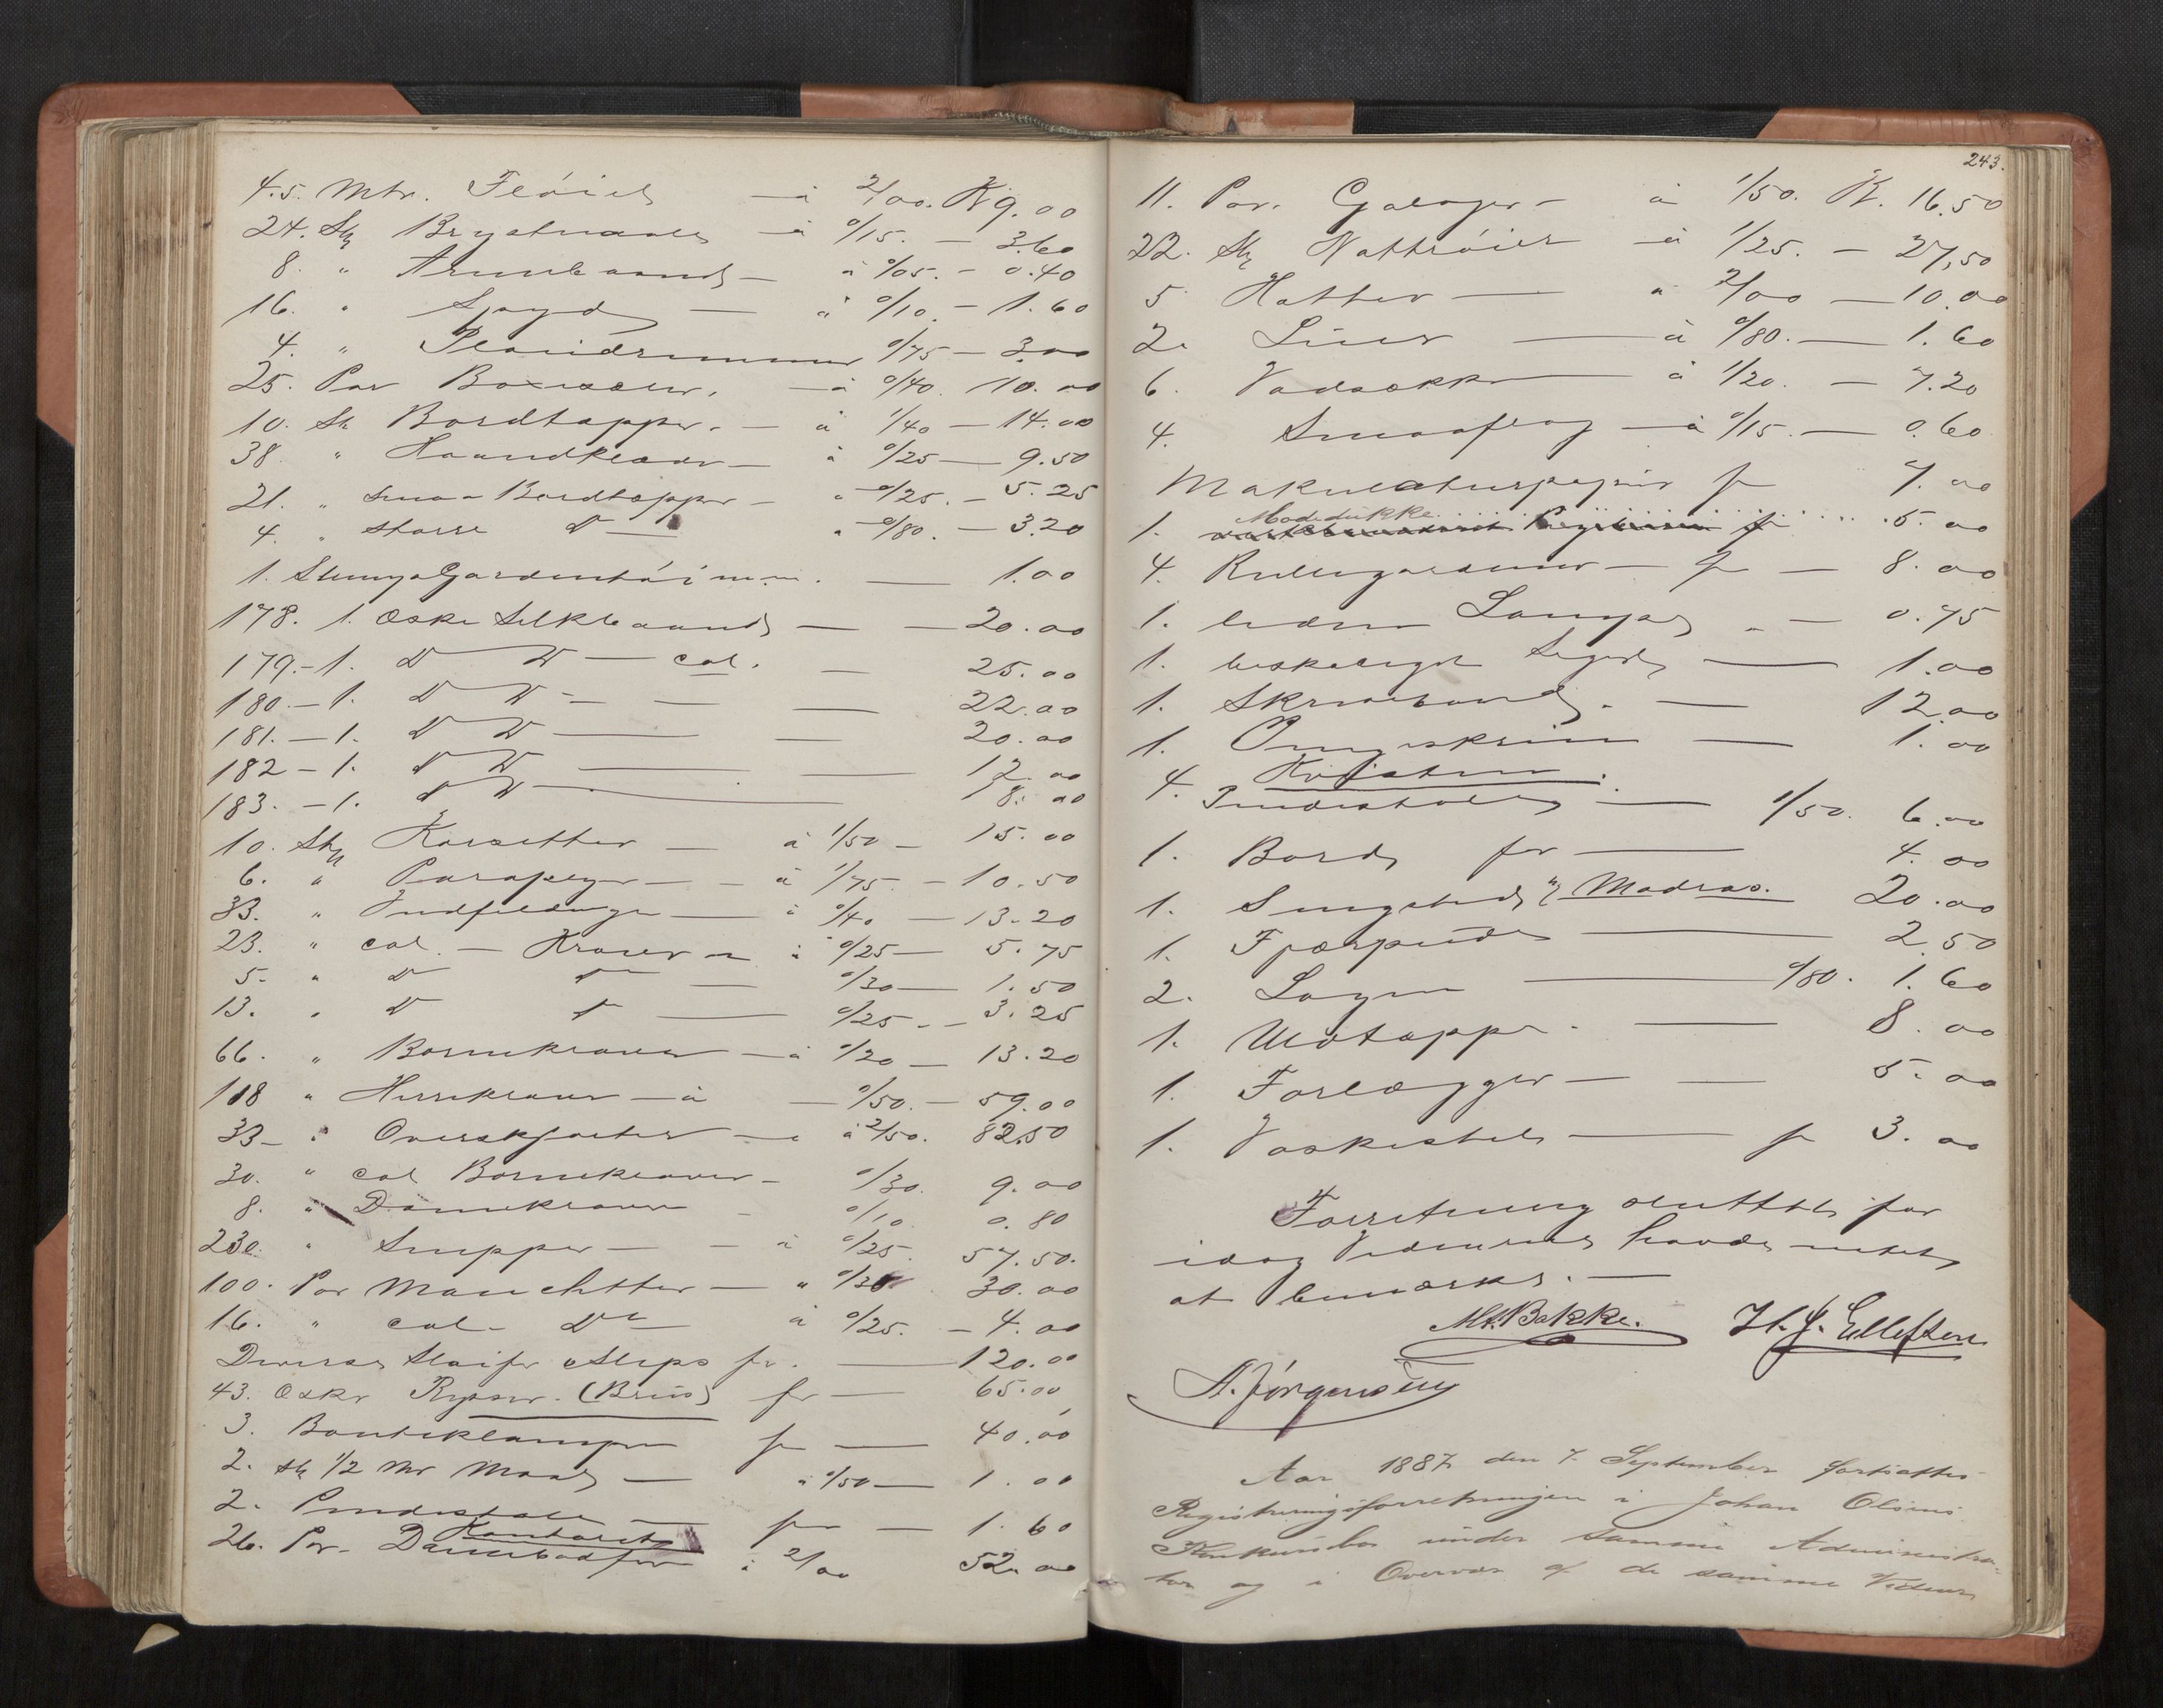 4.5. Mtr. Flóiel — à 2/00. K 9.00
24. Stk Brystnaale — à 0/15. — 3.60
8. " Armbaand — à 0/05. — 0.40
16. " — à 0/10 — 1.60
4. " 0/75 — 3.00
25. Par — à 0/40. 10.00
10. Stk Bordtæpper. — à 1/40 — 14.00
38 " Haandklæder — à 0/25 — 9.50
21. " smaa Bordtæpper — " 0/25. — 5.25
4. " større Do — " 0/80. — 3.20
1. Slump Gardentói — 1.00
178. 1. Æske Silkebaand — 20.00
179. — 1. Do Do — col. — 25.00
180. — 1. Do Do — 22.00
181. — 1. Do Do — 20.00
182 — 1. Do Do — 12.00
183. — 1. Do Do — 18.00
10. Stk Korsetter — à 1/50 — 15.00
6. " Paraplyer — à 1/75. — 10.50
33. " Indfældinger — à 0/40 — 13.20
23. " col. — Kraver — à 0/25 — 5.75
5. " Do Do — 0/30 — 1.50
13. " Do Do — 0/25 — 3.25
66. " Bornekraver — à 0/20 — 13.20
118 " Herrekraver — à — 0/50. — 59.00
33 — " Overskjorter — à 2/50. 82.50
30. " col Bornekraver — 0/30. 9.00
8. " Damekraver — 0/10 0.80
230. " Snipper — à 0/25. 57.50.
100. Par Manchetter — " 0/30 30.00
16. " col — Do à 0/25. — 4.00
Diverse Sløifer & Slips for. — 120.00
43. Æsker Ryscher. (Brüs) for — 65.00
3. Boutiklamper for — 40.00
2. Stk 1/2 Mtr Maal — à 0/50 — 1.00
2. for — 1.60
Kontoret
26. Par. à 2/00 52.00
243.
11. Par. Galoger — à 1/50. K. 16.50
22. Stk Nattróier — à 1/25. — 27,50
5 Hatter — à 2/00 — 10.00
2. Luer — à 0/80. — 1.60
6. Vadsække — à 1/20. — 7.20
4. Smaaflag — à 0/15. — 0.60
Makulaturpapir for 7.00
Modedukke
1. 5.00
4. Rullegardiner — for — 8.00
1. liden Lampe — 0.75
1. beskadiget Speil — 1.00
1. Skrivebord. — 12.00
1. Pengeskrin — 1.00
Kvisten.
4. Pindestole — 1/50. 6.00
1. Bord for — 4.00
1. Sengested m/ Madras. 20.00
1. Fjærpude — 2.50
2. Lagen — 0/80. 1.60
1. Uldtæppe. — 8.00
1. Forlægger — 5.00
1. Vaskestel — for 3.00
Forretning sluttet for
idag Vidnerne havde intet
at bemærke. —
Mt. Bakke. H. J. Ellefsen
A. Jörgensen
Aar 1887 den 7. September fortsattes
Registreringsforretningen i Johan Olsens
Konkursbo under samme Administra-
tor og i Overvær af de samme Vidner